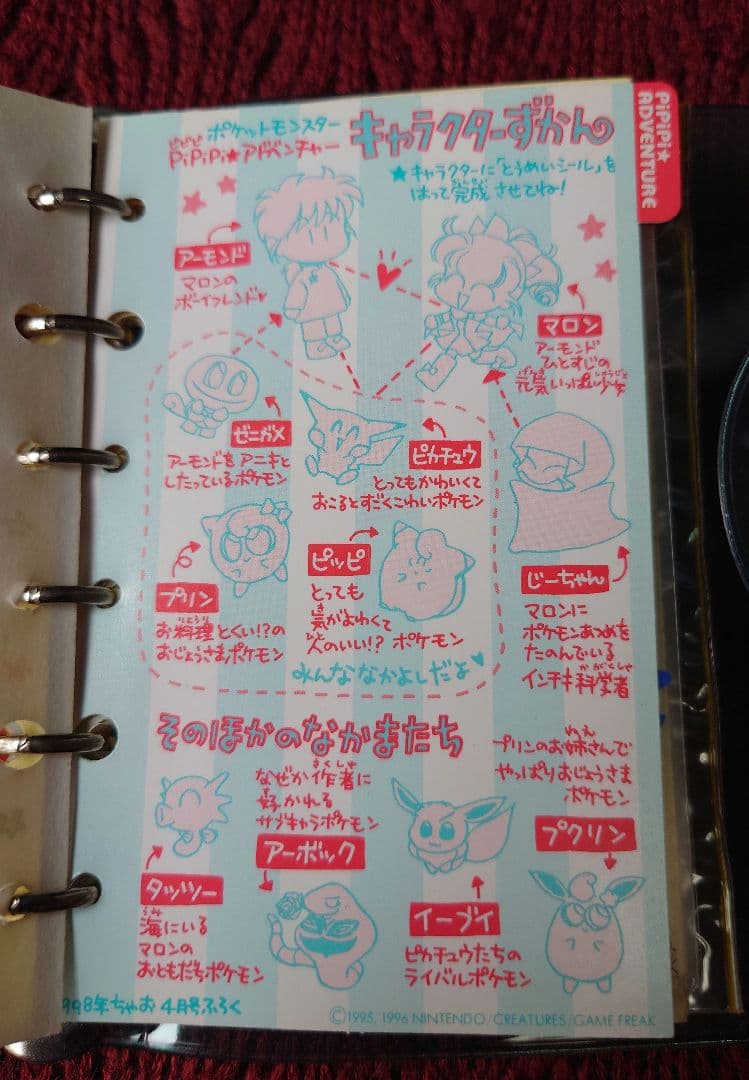 PiPiPi★
ADVENTURE
ポケットモンスター
ピピピ
PiPiPi★アドベンチャー
キャラクターずかん
★キャラクターに「とうめいシール」を
はって完成させてね!
かんせい
アーモンド
マロンの
ボーイフレンド♥
マロン
アーモンド
ひとすじの
げんき しょうじょ
元気いっぱい少女
ゼニガメ
アーモンドをアニキと
したっているポケモン
ピカチュウ
とってもかわいくて
おこるとすごくこわいポケモン
プリン
りょうり
お料理とくい!?の
おじょうさまポケモン
ピッピ
とっても
き
気がよわくて
ひと
人のいい!? ポケモン
みんななかよしだよ♥
じーちゃん
マロンに
ポケモンあつめを
たのんでいる
かがくしゃ
インチキ科学者
そのほかのなかまたち
タッツー
うみ
海にいる
マロンの
おともだちポケモン
さくしゃ
なぜか作者に
す
好かれる
サブキャラポケモン
アーボック
イーブイ
ピカチュウたちの
ライバルポケモン
ねえ
プリンのお姉さんで
やっぱりおじょうさま
ポケモン
プクリン
998年ちゃお4月号ふろく
©1995, 1996 NINTENDO/CREATURES/GAME FREAK